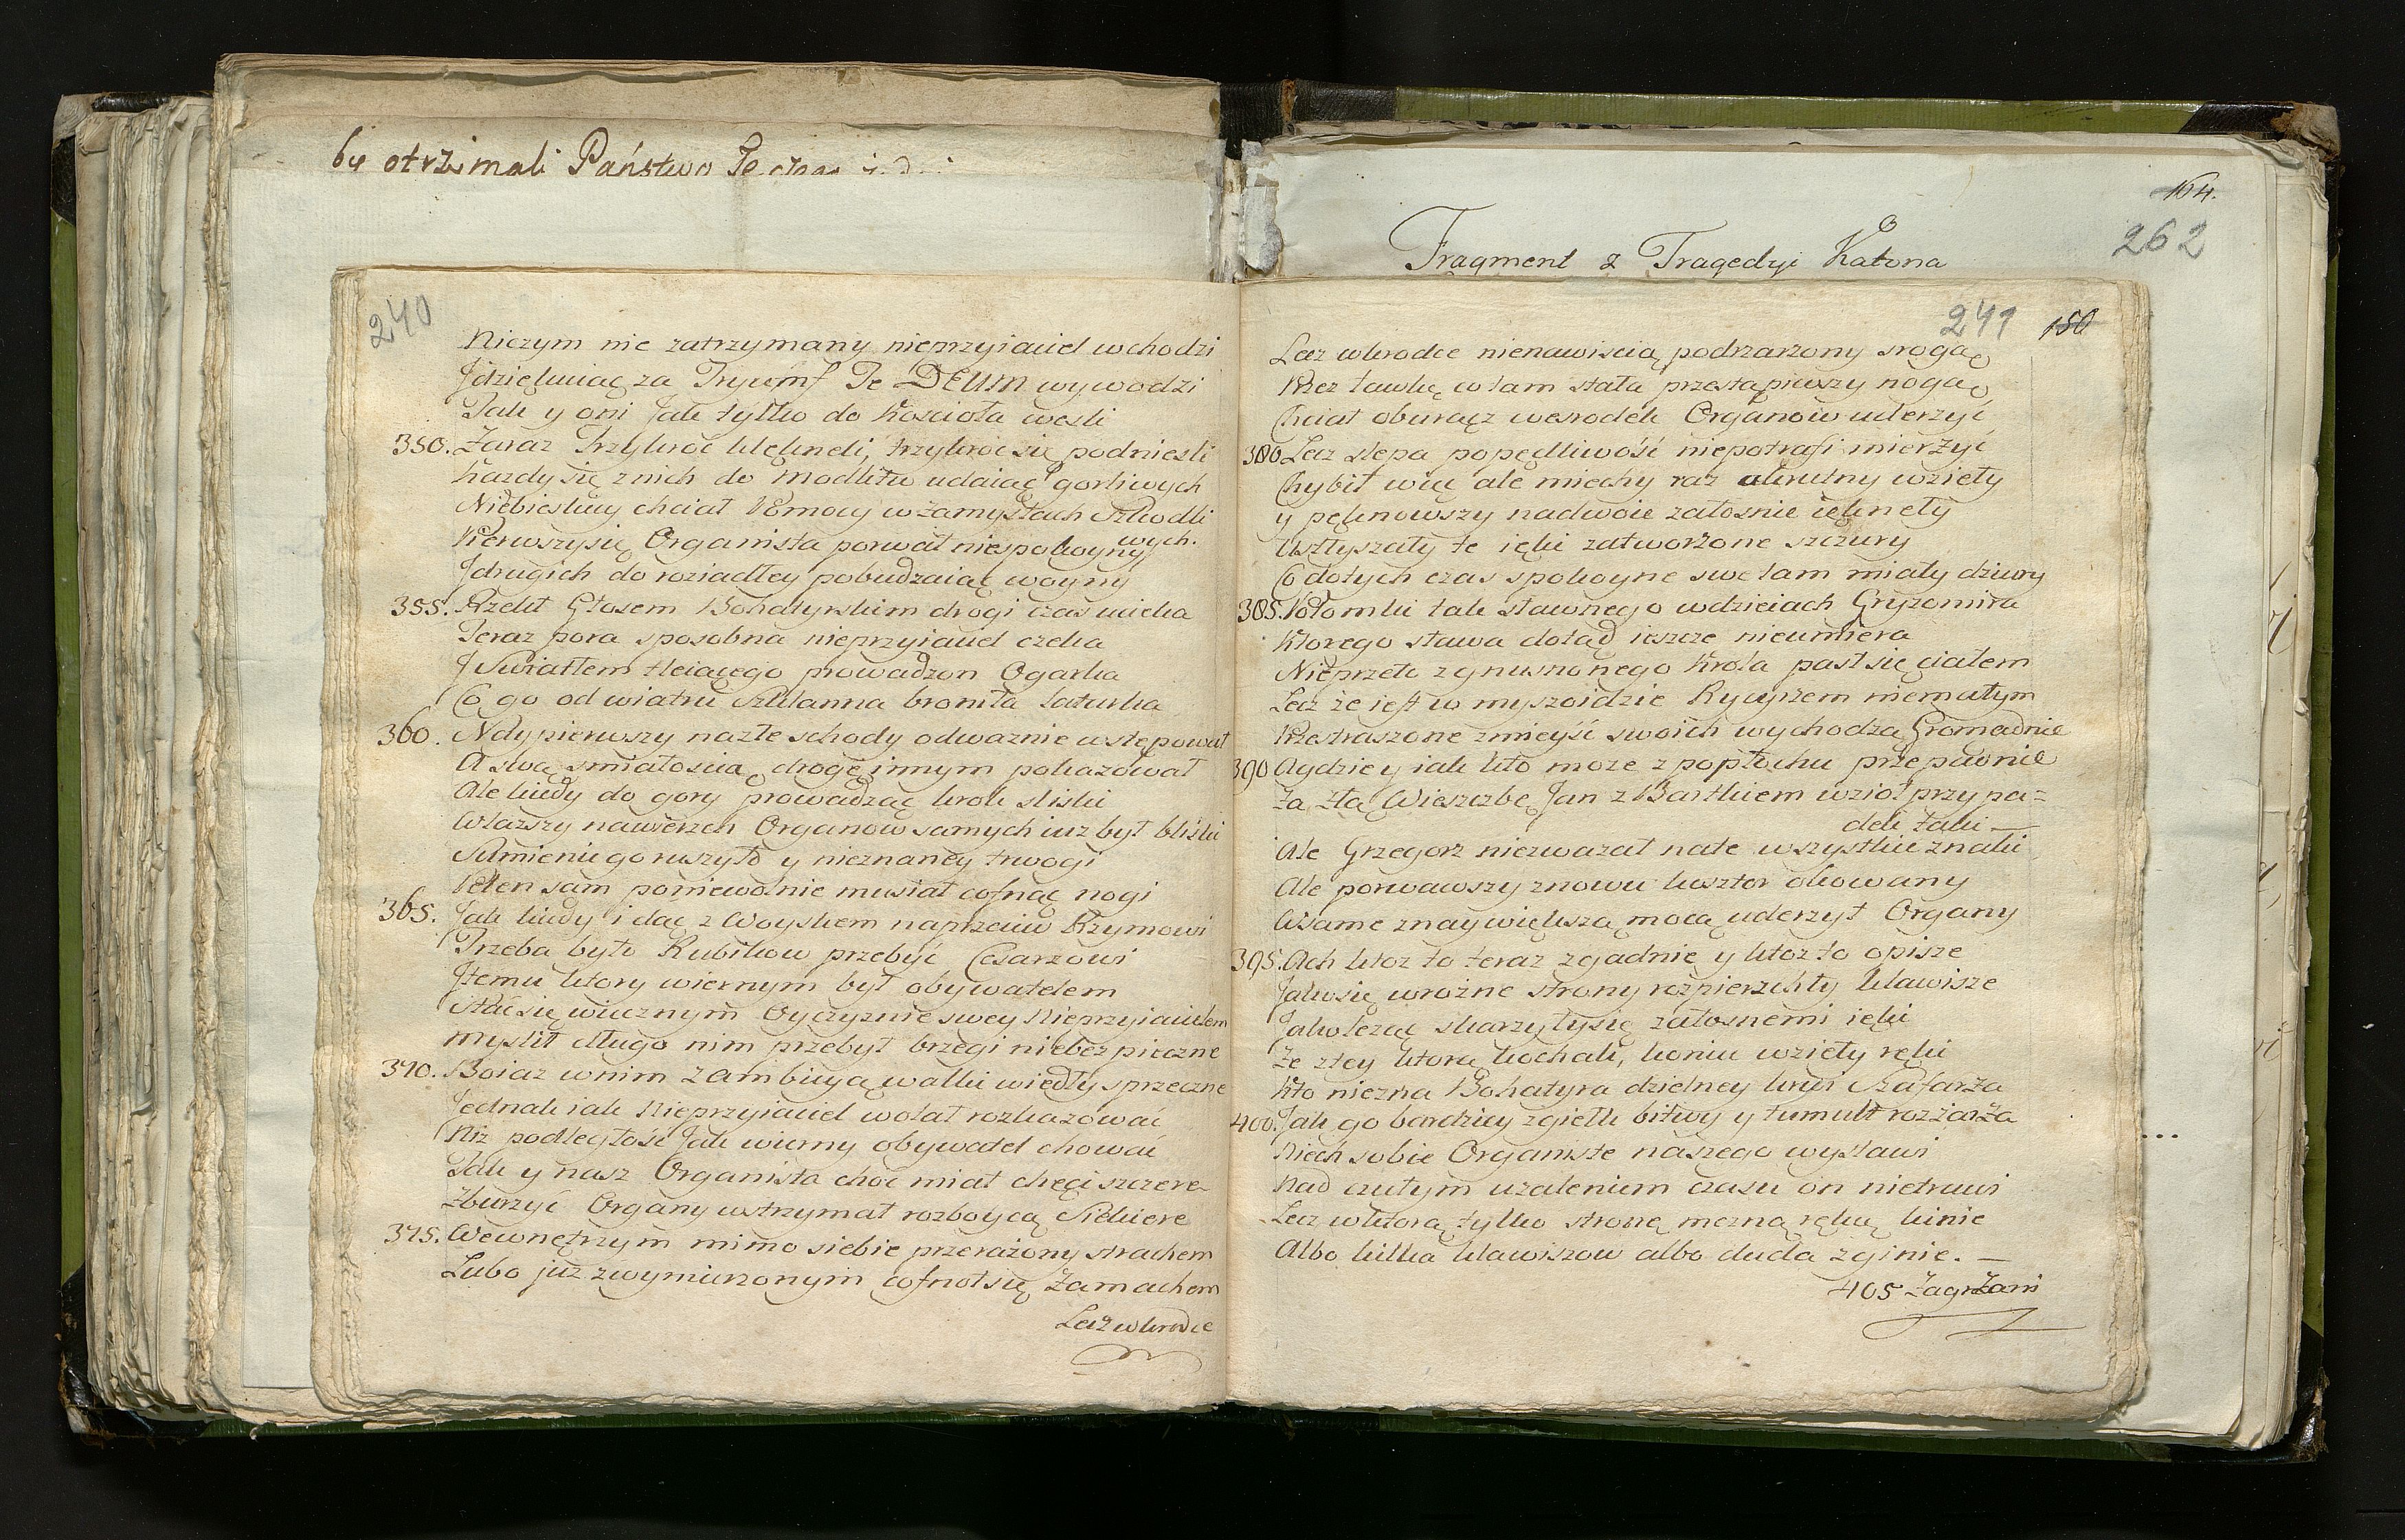 by otrzimali Państwo
240
Niczym nie zatrzymany nieprzyiaciel wchodzi
J dziękuiąc za Tryumf Te DEUM wywodzi
Tak y oni Jak tylko do Kościoła weszli
350. Zaraz Trzykroć klękneli, trzykroć się podniesli
Kazdy się z nich do modlitw udaiąc gorliwych
Niebieskiey chciał Pomocy w zamysłach Szkodli
wych.
Pierwszy się Organista porwał niespokoyny
J drugich do roziadłey pobudzaiąc woyny
355. Rzekł Głosem Bohatyrskim drogi czas ucieka
Teraz pora sposobna nieprzyiaciel czeka
J Swiatłem tleiącego prowadzon Ogarka
Co go od wiatru Szklanna broniła latarka
360. Ndy pierwszy na złe schody odwaznie wstępował
A swą smiałoscią drogę innym pokazował
Ale kiedy do gory prowadząc krok sliski
Wlazszy nawierzch Organow samych iuz był bliski
Sumienie go ruszyło y nieznaney trwogi
Pełen sam poniewolnie musiał cofnąć nogi
365. Jak kiedy idąc z Woyskiem naprzeciw Rzymowi
Trzeba było Rubikow przebyć Cesarzowi
J temu ktory wiernym był obywatelem
Stać się wiecznym Oyczyznie swey Nieprzyiacielem
myslił długo nim przebył brzegi niebezpieczne
370. Boiaz w nim z ambicyą walki wiedły sprzeczne
Jednak iak Nieprzyiaciel wolał rozkazować
Niz podległość Jak wierny obywatel chować
Tak y nasz Organista choc miał chęci szczere
Zburzyć Organy wstrzymał rozboyczą Siekierę
375. Wewnętrzym mimo siebie przerażony strachem
Lubo już z wymierzonym cofnoł się zamachem
Lecz wkrodce
164.
262
Fragment z Tragedyi Katona
241 150
Lecz wkrodce nienawiscią podrzarzony srogą
Przez ławkę co tam stała przestąpiwszy nogą
Chciał oburącz wesrodek Organow uderzyć
380 Lecz slepa popędliwość niepotrafi mierzyć
Chybił więc ale miechy raz okrutny wzieły
y pęknowszy nadwoie załosnie ięknęły
Usłyszały te ięki zatworzone szczury
Co dotych czas spokoyne swe tam miały dziury
385. Potomki tak sławnego w dzieiach Gryzomira
Ktorego sława dotąd ieszcze nieumiera
Nieprzeto z gnusnonego Krola pasł się ciałem
Lecz że iest w myszoidzie Rycyrzem niemałym
Przestraszone z mieyść swoich wychodzą Gromadnie
390 A gdzie y iak kto moze z popłochu przepadnie
Za złą Wieszczbę Jan z Bartkiem wzioł przypa=
dek taki —
Ale Grzegorz niezwazał nate wszystkie znaki
Ale porwawszy znowu kosztor okowany
W same znaywiększą mocą uderzył Organy
395. Ach ktoz to teraz zgadnie y ktoz to opisze
Jak się w rożne strony rozpierzchły klawisze
Jak lecąc skarzyły się załosnemi ięki
Ze złey ktorą kochali, koniec wzieły ręki
Kto niezna Bohatyra dzielney krwi Szafarza
400. Jak go bardziey zgiełk bitwy y tumult rozżarża
Niech sobie Organiste naszego wystawi
Nad czułym uzaleniem czasu on nietrawi
Lecz w ktorą tylko stronę mczną ręką kinie
Albo kilka klawiszow albo duda zginie. —
405 Zagrzani